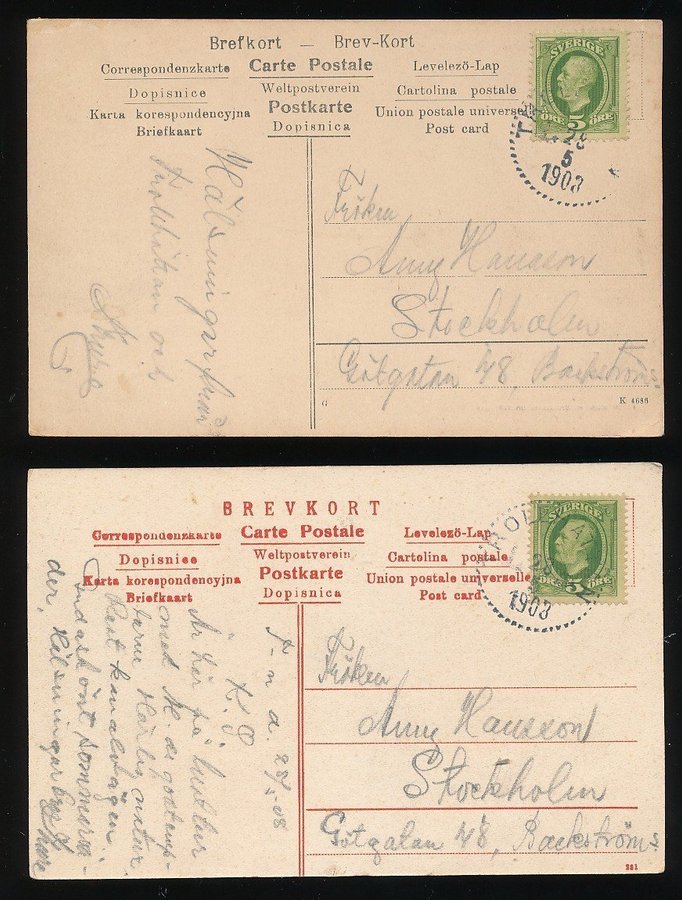 Brefkort — Brev-Kort
Correspondenzkarte Carte Postale Levelező-Lap
Dopisnice Weltpostverein Cartolina postale
Karta korespondencyjna Postkarte Union postale universelle
Briefkaart Dopisnica Post card
SVERIGE
5
ÖRE ÖRE
28
5
1908
Hälsningar från
Trollhättan och
Fröken
Anny Hansson
Stockholm
Götgatan 48, Backströms.
G K 4686
BREVKORT
Correspondenzkarte Carte Postale Levelező-Lap
Dopisnice Weltpostverein Cartolina postale
Karta korespondencyjna Postkarte Union postale universelle
Briefkaart Dopisnica Post card
SVERIGE
5
ÖRE ÖRE
1908
T-n d. 28/5-08
K. S.
Är här på lusttur
med M. af godtemp-
larne Härlig natur.
Rest kanalvägen.
Endast sommarklä-
der. Hälsningar
Fröken
Anny Hansson
Stockholm
Götgatan 48, Backströms